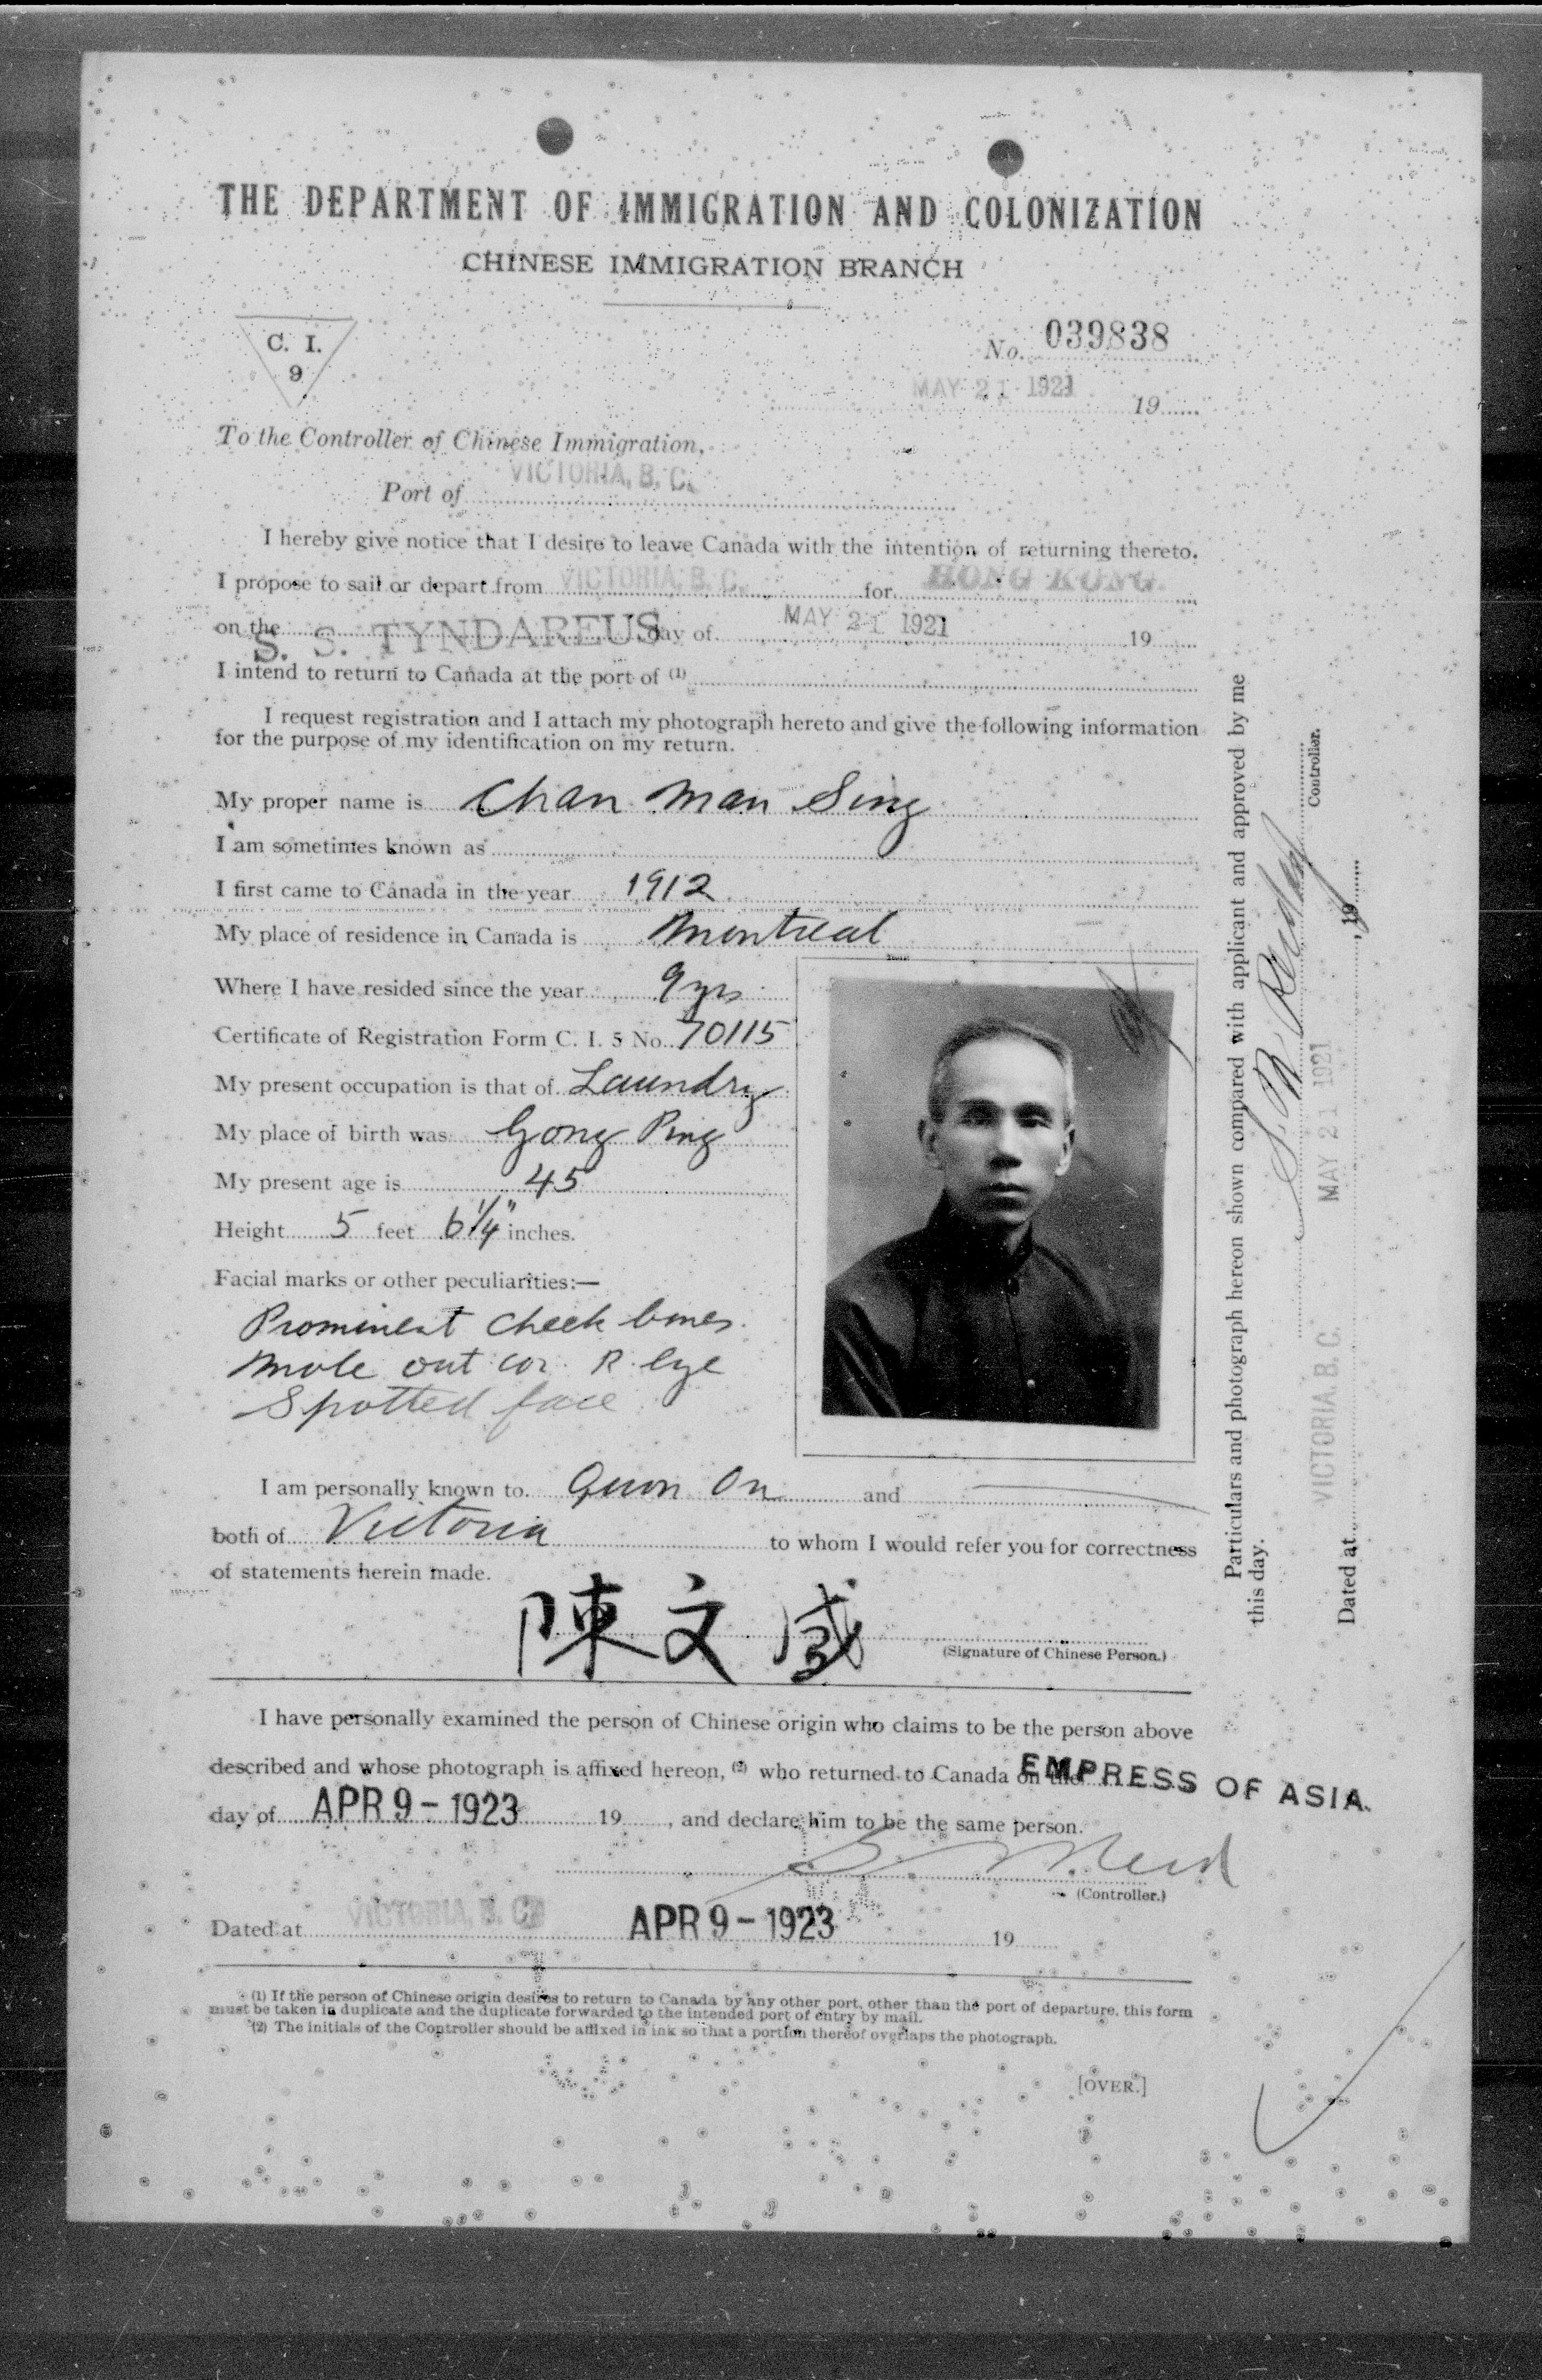 THE DEPARTMENT OF IMMIGRATION AND COLONIZATION
CHINESE IMMIGRATION BRANCH
C. I.
9
No. 039838
MAY 21 1921 19
To the Controller of Chinese Immigration,
Port of VICTORIA, B. C.
I hereby give notice that I desire to leave Canada with the intention of returning thereto.
I propose to sail or depart from VICTORIA, B. C. for HONG KONG.
on the S. S. TYNDAREUS day of MAY 21 1921 19
I intend to return to Canada at the port of (1)
I request registration and I attach my photograph hereto and give the following information
for the purpose of my identification on my return.
My proper name is Chan Man Sing
I am sometimes known as
I first came to Canada in the year 1912
My place of residence in Canada is Montreal
Where I have resided since the year 9 yrs
Certificate of Registration Form C. I. 5 No. 70115
My present occupation is that of Laundry
My place of birth was Gong Ping
My present age is 45
Height 5 feet 6 1/4" inches.
Facial marks or other peculiarities:—
Prominent cheek bones.
Mole out cor. R. Eye
Spotted face
I am personally known to Quon On and
both of Victoria to whom I would refer you for correctness
of statements herein made.
陳文盛
(Signature of Chinese Person.)
I have personally examined the person of Chinese origin who claims to be the person above
described and whose photograph is affixed hereon, (2) who returned to Canada on the EMPRESS OF ASIA.
day of APR 9 - 1923 19 , and declare him to be the same person.
(Controller.)
Dated at VICTORIA, B. C. APR 9 - 1923 19
(1) If the person of Chinese origin desires to return to Canada by any other port, other than the port of departure, this form
must be taken in duplicate and the duplicate forwarded to the intended port of entry by mail.
(2) The initials of the Controller should be affixed in ink so that a portion thereof overlaps the photograph.
[OVER.]
Particulars and photograph hereon shown compared with applicant and approved by me
this day.
Controller.
Dated at VICTORIA, B. C. MAY 21 1921 , 19